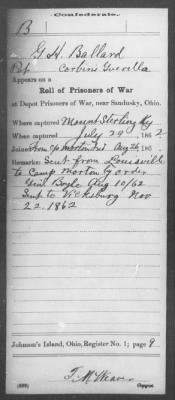 Confederate.
B
G. H. Ballard
Pvt Corbin's Guerilla
Appears on a
Roll of Prisoners of War
at Depot Prisoners of War, near Sandusky, Ohio.
Where captured Mount Sterling Ky
When captured July 29, 1862
Joined from Cp Morton Ind Aug 26, 186
Remarks: Sent from Louisville
to Camp Morton by order
Genl Boyle Aug 10/62
Sent to Vicksburg Nov
22. 1862
Johnson's Island, Ohio, Register No. 1; page 9
T. M. Weaver
Copyist.